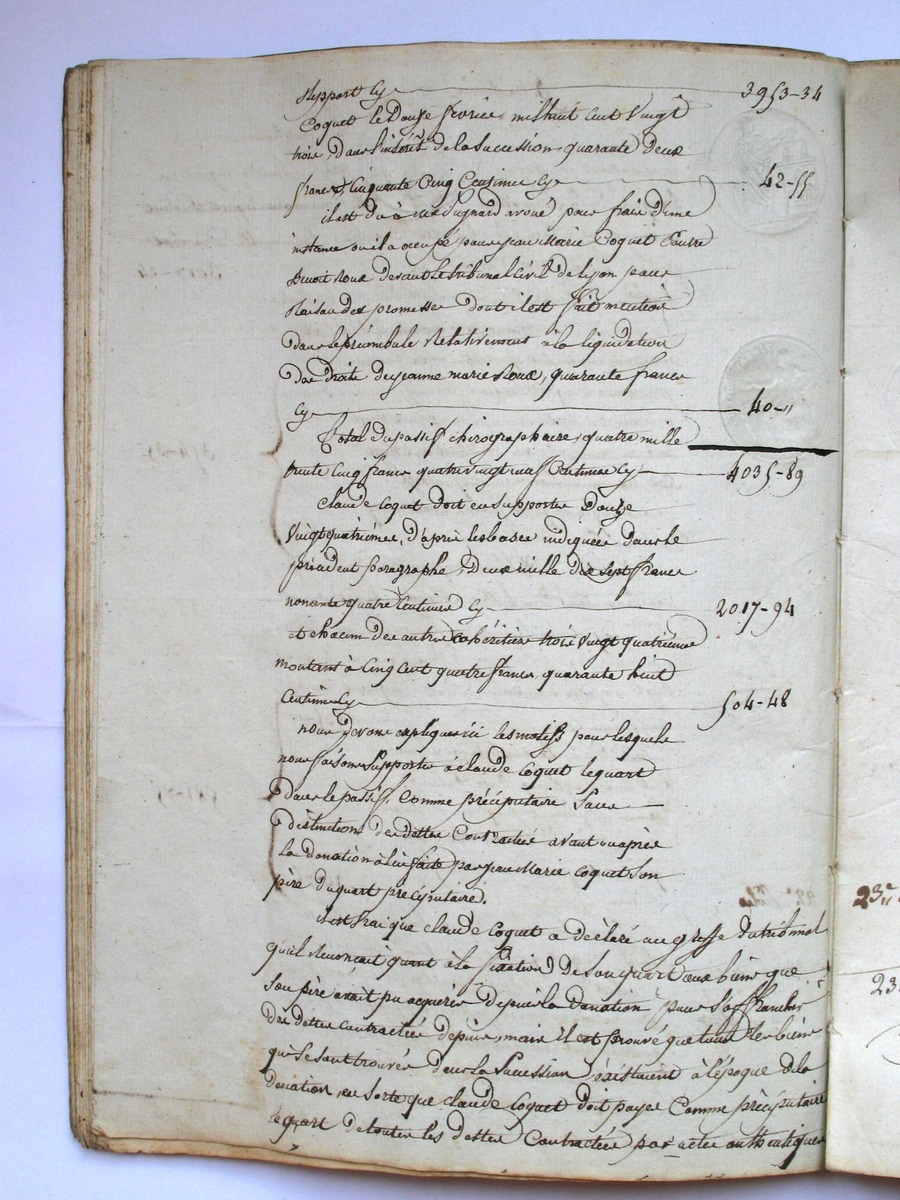 Report Cy 3953-34
Coquet le Douze fevrier mil huit cent Vingt
trois, Dans l'intérêt de la Succession, quarante Deux
francs Cinquante Cinq Centimes Cy 42-55
il est dû à avoué pour frais d'une
instance où il a occupé pour jean Marie Coquet Contre
Benoit Roux devant le tribunal Civil de Lyon pour
Raison des promesses dont il est fait mention
dans le préambule Relativement à la liquidation
des Droits de jeanne marie Roux, quarante francs
Cy 40-"
Total du passif chirographaire, quatre mille
trente Cinq francs quatre vingt neuf Centimes Cy 4035-89
Claude Coquet doit en Supporter Douze
Vingt quatrièmes, D'après les bases indiquées dans le
précédent paragraphe, Deux mille dix sept francs
nonante quatre Centimes Cy 2017-94
et chacun des autres Cohéritiers trois Vingt quatrièmes
montant à Cinq Cent quatre francs, quarante huit
Centimes Cy 504-48
nous devons expliquer ici les motifs pour lesquels
nous faisons Supporter à Claude Coquet le quart
Dans le passif, Comme préciputaire Sans
distinction des dettes Contractées avant ou après
la donation à lui faite par jean Marie Coquet Son
père Du quart préciputaire.
il est Vrai que Claude Coquet a déclaré au greffe du tribunal
qu'il Renoncait quant à la fixation De Son quart aux biens que
Son père avait pu acquérir depuis la Donation pour S'affranchir
des dettes contractées depuis, mais il est prouvé que tous les biens
qui Se sont trouvés dans la Succession, existaient à l'époque de la
donation, en Sorte que Claude Coquet doit payer Comme préciputaire
le quart de toutes les dettes Contractées par actes authentiques
23e
23